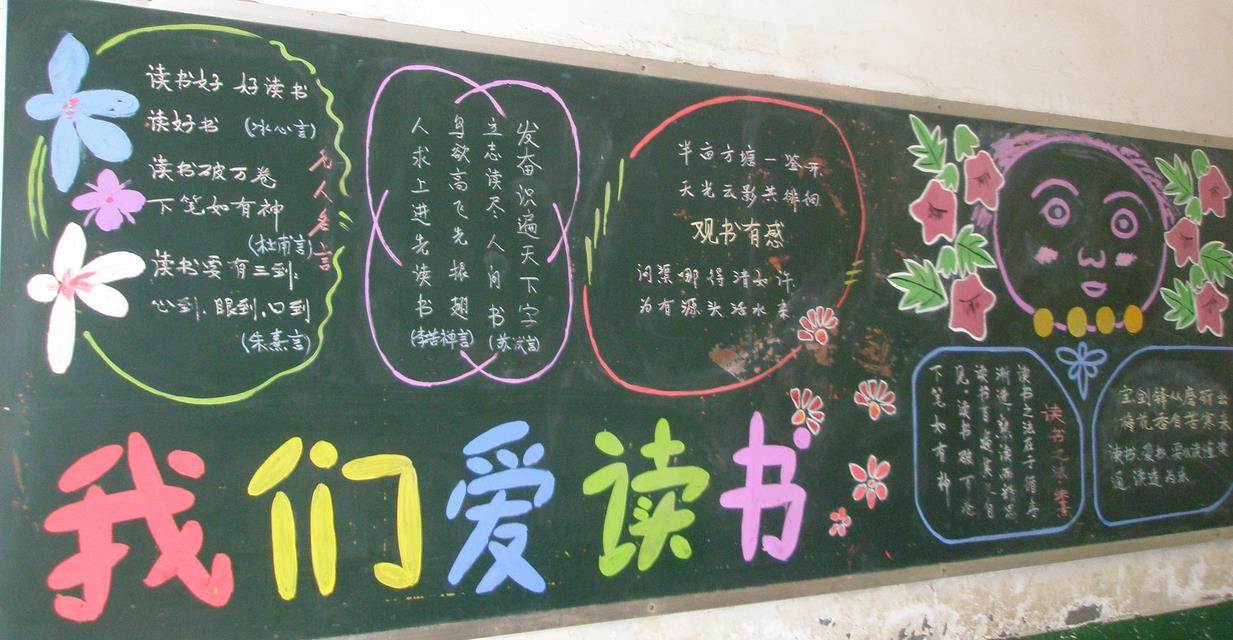 读书好 好读书
读好书 (冰心言)
读书破万卷
下笔如有神
(杜甫言)
读书要有三到:
心到、眼到、口到
(朱熹言)
名人名言
发奋识遍天下字
立志读尽人间书
(苏轼言)
鸟欲高飞先振翅
人求上进先读书
(李苦禅言)
半亩方塘一鉴开
天光云影共徘徊
观书有感
问渠哪得清如许
为有源头活水来
我们爱读书
读书之法
读书之法在于循序
渐进,熟读而精思
读书百遍其义自
见 读书破万卷
下笔如有神
宝剑锋从磨砺出
梅花香自苦寒来